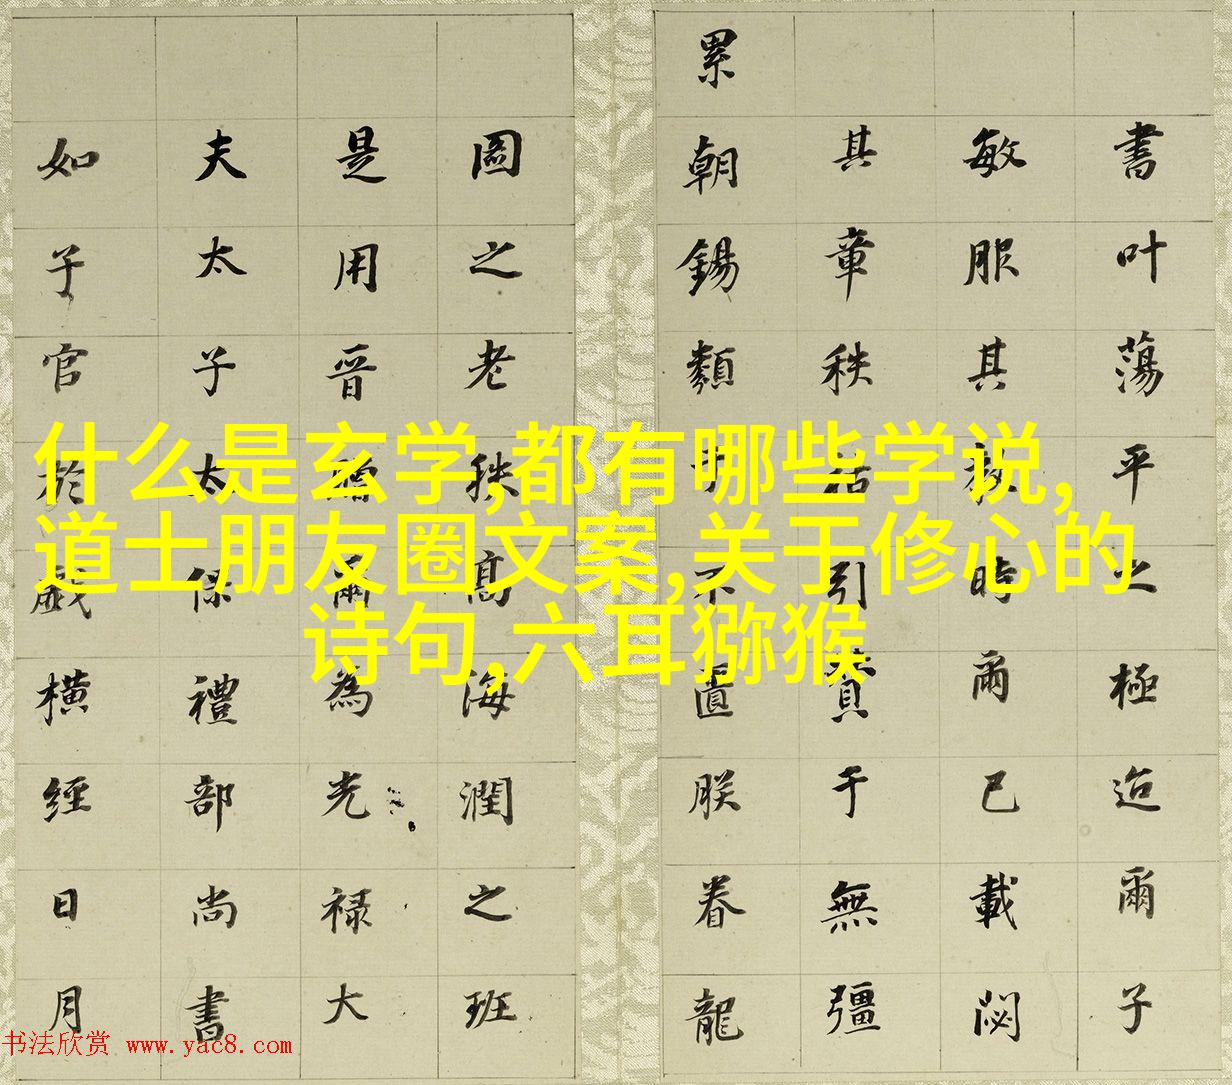 什么是玄学,都有哪些学说,
道士朋友圈文案,关于修心的
诗句,六耳猕猴
書叶蕩平之極迨爾子
敏服其時爾已載閟
其章秩祜引賁于無彊
累朝錫類不匱朕眷龍
圖之老秩高海潤之班
是用晉爾為光禄大
夫太子太保禮部尚書
如子官於戲橫經日月
书法欣赏 www.yac8.com